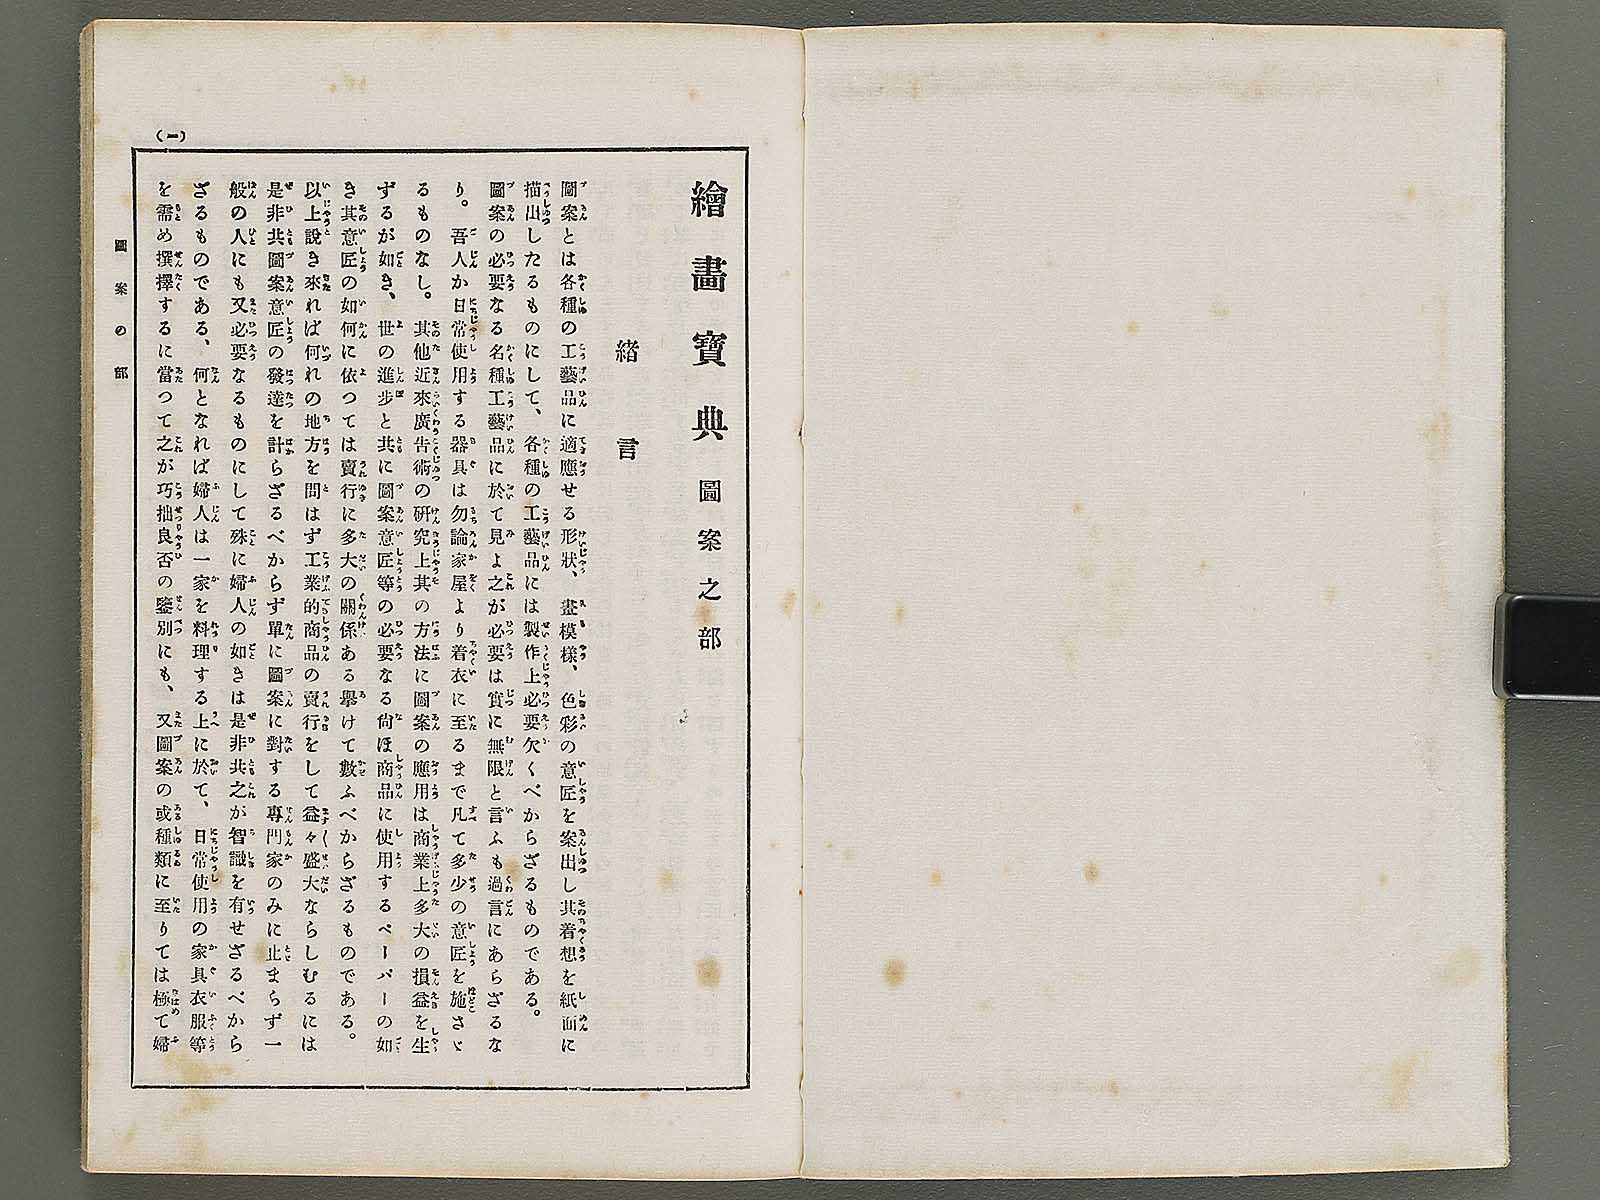 繪畫寶典 圖案之部
緒言
圖案とは各種の工藝品に適應せる形狀、畫模樣、色彩の意匠を案出し其着想を紙面に
描出したるものにして、各種の工藝品には製作上必要欠くべからざるものである。
圖案の必要なる名種工藝品に於て見よ之が必要は實に無限と言ふも過言にあらざるな
り。吾人か日常使用する器具は勿論家屋より着衣に至るまで凡て多少の意匠を施さゞ
るものなし。其他近來廣告術の研究上其の方法に圖案の應用は商業上多大の損益を生
ずるが如き、世の進步と共に圖案意匠等の必要なる尙ほ商品に使用するペーパーの如
き其意匠の如何に依つては賣行に多大の關係ある擧けて數ふべからざるものである。
以上說き來れば何れの地方を問はず工業的商品の賣行をして益々盛大ならしむるには
是非共圖案意匠の發達を計らざるべからず單に圖案に對する專門家のみに止まらず一
般の人にも又必要なるものにして殊に婦人の如きは是非共之が智識を有せざるべから
ざるものである、何となれば婦人は一家を料理する上に於いて、日常使用の家具衣服等
を需め撰擇するに當つて之が巧拙良否の鑒別にも、又圖案の或種類に至りては極て婦
圖案の部
(一)